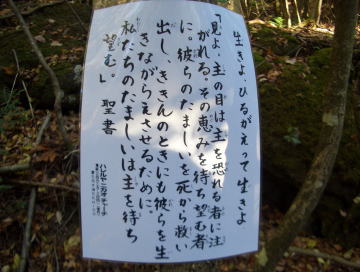 生きよ、ひるがえって生きよ
「見よ。主の目は主を恐れる者に注
がれる。その恵みを待ち望む者
に。彼らのたましいを死から救い
出し、ききんのときにも彼らを生
きながらえさせるために。
私たちのたましいは主を待ち
望む」 聖書
ハルヤニカオ チャーチ